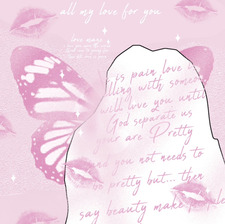 all my love for you
love means
is pain love is
lling with someon
will love you until
God separate us
your are Pretty
and you not needs to
be pretty but... then
say beauty make people